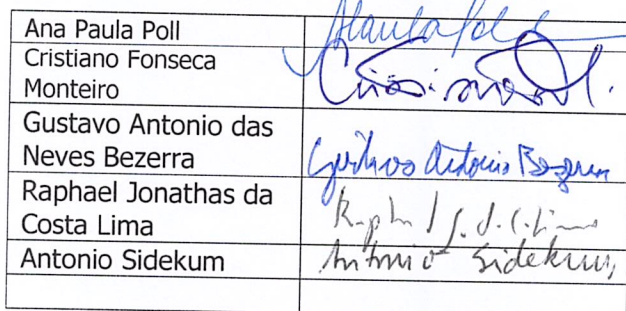 Ana Paula Poll
Cristiano Fonseca
Monteiro
Gustavo Antonio das
Neves Bezerra
Gustavo Antonio Bezerra
Raphael Jonathas da
Costa Lima
Antonio Sidekum
Antonio Sidekum